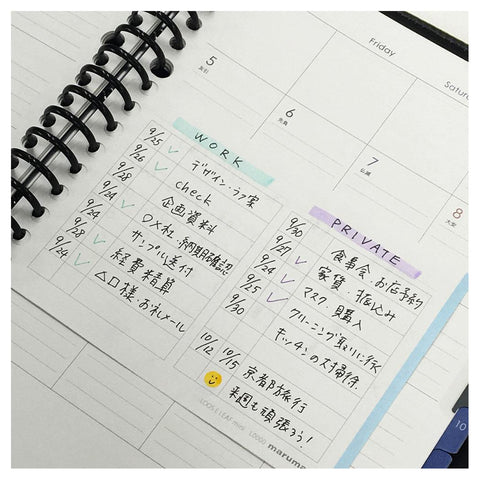 Friday
Satur
5
友引
6
先負
7
仏滅
8
大安
WORK
9/25 ✓ デザイン・ラフ案
9/26 ✓ check
9/28 企画資料
9/24 ✓ 〇X社・納期確認
9/24 サンプル送付
9/28 ✓ 経費精算
9/24 ✓ △□様お礼メール
PRIVATE
9/30 食事会・お店予約
9/27 ✓ 家賃 振込み
9/24 ✓ マスク購入
9/25 ✓ クリーニング取りに行く
9/30 キッチンの大掃除
10/12 10/15 京都旅行
来週も頑張ろう!
LOOSE LEAF mini maruma
10